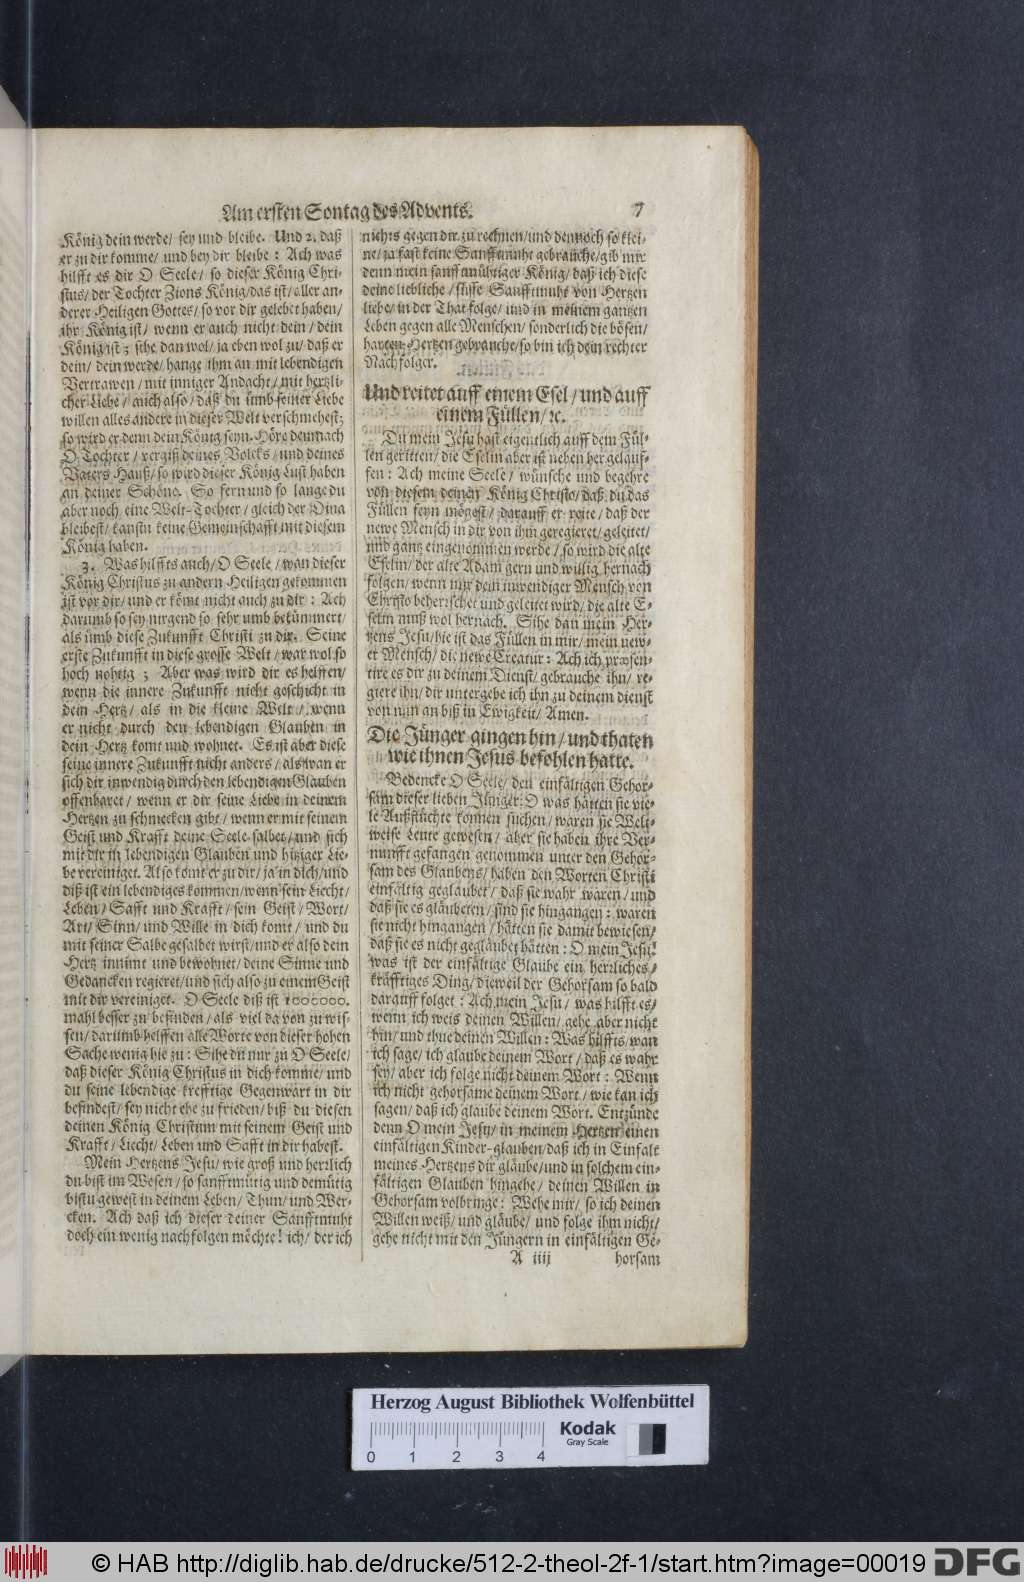 Am ersten Sontag des Advents. 7
König dein werde/ sey und bleibe. Und 2. daß
er zu dir komme/ und bey dir bleibe: Ach was
hilfft es dir O Seele/ so dieser König Chri-
stus/ der Tochter Zions König/ das ist/ aller an-
derer Heiligen Gottes/ so vor dir gelebet haben/
ihr König ist/ wenn er auch nicht dein/ dein
König ist; sihe dan wol/ ja eben wol zu/ daß er
dein/ dein werde/ hange ihm an mit lebendigen
Vertrawen/ mit inniger Andacht/ mit hertzli-
cher Liebe/ auch also/ daß du ümb seiner Liebe
willen alles andere in dieser Welt verschmehest;
so wird er denn dein König seyn. Höre demnach
O Tochter/ vergiß deines Volcks/ und deines
Vaters Hauß/ so wird dieser König Lust haben
an deiner Schöne. So fern und so lange du
aber noch eine Welt-Tochter/ gleich der Dina
bleibest/ kanstu keine Gemeinschafft mit diesem
König haben.
3. Was hilffts auch/ O Seele/ wan dieser
König Christus zu andern Heiligen gekommen
ist vor dir/ und er kömt nicht auch zu dir: Ach
darumb so sey nirgend so sehr umb bekümmert/
als ümb diese Zukunfft Christi zu dir. Seine
erste Zukunfft in diese grosse Welt/ war wol so
hoch nöhtig; Aber was wird dir es helffen/
wenn die innere Zukunfft nicht geschicht in
dein Hertz/ als in die kleine Welt/ wenn
er nicht durch den lebendigen Glauben in
dein Hertz komt und wohnet. Es ist aber diese
seine innere Zukunfft nicht anders/ als wan er
sich dir inwendig durch den lebendigen Glauben
offenbaret/ wenn er dir seine Liebe in deinem
Hertzen zu schmecken gibt/ wenn er mit seinem
Geist und Krafft deine Seele salbet/ und sich
mit dir in lebendigen Glauben und hitziger Lie-
be vereiniget. Also komt er zu dir/ ja in dich/ und
diß ist ein lebendiges kommen/ wenn sein Liecht/
Leben/ Safft und Krafft/ sein Geist/ Wort/
Art/ Sinn/ und Wille in dich komt/ und du
mit seiner Salbe gesalbet wirst/ und er also dein
Hertz innimt und bewohnet/ deine Sinne und
Gedancken regieret/ und sich also zu einem Geist
mit dir vereiniget. O Seele diß ist 1000000.
mahl besser zu befinden/ als viel da von zu wis-
sen/ darumb helffen alle Worte von dieser hohen
Sache wenig hie zu: Sihe du nur zu O Seele/
daß dieser König Christus in dich komme/ und
du seine lebendige krefftige Gegenwart in dir
befindest/ sey nicht ehe zu frieden/ biß du diesen
deinen König Christum mit seinem Geist und
Krafft/ Liecht/ Leben und Safft in dir habest.
Mein Hertzens Jesu/ wie groß und herrlich
du bist im Wesen/ so sanfftmütig und demütig
bistu gewest in deinem Leben/ Thun/ und Wer-
cken. Ach daß ich dieser deiner Sanfftmuht
doch ein wenig nachfolgen möchte! ich/ der ich
nichts gegen dir zu rechnen/ und dennoch so klei-
ne/ ja fast keine Sanfftmuht gebrauche/ gib mir
denn mein sanfftmühtiger König/ daß ich diese
deine liebliche/ süsse Sanfftmuht von Hertzen
liebe/ in der That folge/ und in meinem gantzen
Leben gegen alle Menschen/ sonderlich die bösen/
harten Hertzen gebrauche/ so bin ich dein rechter
Nachfolger.
Und reitet auff einem Esel/ und auff
einem Füllen/ ꝛc.
Du mein Jesu hast eigentlich auff dem Fül-
len geritten/ die Eselin aber ist neben her gelauf-
fen: Ach meine Seele/ wünsche und begehre
von diesem deinen König Christo/ daß du das
Füllen seyn mögest/ darauff er reite/ daß der
newe Mensch in dir von ihm geregieret/ geleitet/
und gantz eingenommen werde/ so wird die alte
Eselin/ der alte Adam gern und willig hernach
folgen/ wenn nur dein inwendiger Mensch von
Christo beherrschet und geleitet wird/ die alte E-
selin muß wol hernach. Sihe dan mein Her-
tzens Jesu/ hie ist das Füllen in mir/ mein new-
er Mensch/ die newe Creatur: Ach ich præsen-
tire es dir zu deinem Dienst/ gebrauche ihn/ re-
giere ihn/ dir untergebe ich ihn zu deinem dienst
von nun an biß in Ewigkeit/ Amen.
Die Jünger gingen hin/ und thaten
wie ihnen Jesus befohlen hatte.
Bedencke O Seele/ den einfältigen Gehor-
sam dieser lieben Jünger: O was hätten sie vie-
le Außflüchte können suchen/ wären sie Welt-
weise Leute gewesen/ aber sie haben ihre Ver-
nunfft gefangen genommen unter den Gehor-
sam des Glaubens/ haben den Worten Christi
einfältig gegläubet/ daß sie wahr wären/ und
daß sie es gläubeten/ sind sie hingangen: waren
sie nicht hingangen/ hätten sie damit bewiesen/
daß sie es nicht gegläubet hätten: O mein Jesu!
was ist der einfältige Glaube ein herrliches/
kräfftiges Ding/ dieweil der Gehorsam so bald
darauff folget: Ach mein Jesu/ was hilfft es/
wenn ich weis deinen Willen/ gehe aber nicht
hin/ und thue deinen Willen: Was hilffts/ wan
ich sage/ ich glaube deinem Wort/ daß es wahr
sey/ aber ich folge nicht deinem Wort: Wenn
ich nicht gehorsame deinem Wort/ wie kan ich
sagen/ daß ich glaube deinem Wort. Entzünde
denn O mein Jesu/ in meinem Hertzen einen
einfältigen Kinder-glauben/ daß ich in Einfalt
meines Hertzens dir gläube/ und in solchem ein-
fältigen Glauben hingehe/ deinen Willen in
Gehorsam volbringe: Wehe mir/ so ich deinen
Willen weiß/ und gläube/ und folge ihm nicht/
gehe nicht mit den Jüngern in einfältigen Ge-
A iiij horsam
Herzog August Bibliothek Wolfenbüttel
0 1 2 3 4
Kodak
Gray Scale
© HAB http://diglib.hab.de/drucke/512-2-theol-2f-1/start.htm?image=00019 DFG